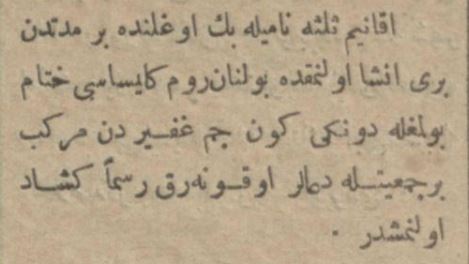 اقانیم ثلثه نامیله بك اوغلنده بر مدتدن
بری انشا اولنمقده بولنان روم کلیساسی ختام
بولمغله دونکی کون جم غفیر دن مرکب
برجمعیتله دعالر اوقونه‌رق رسماً کشاد
اولنمشدر .